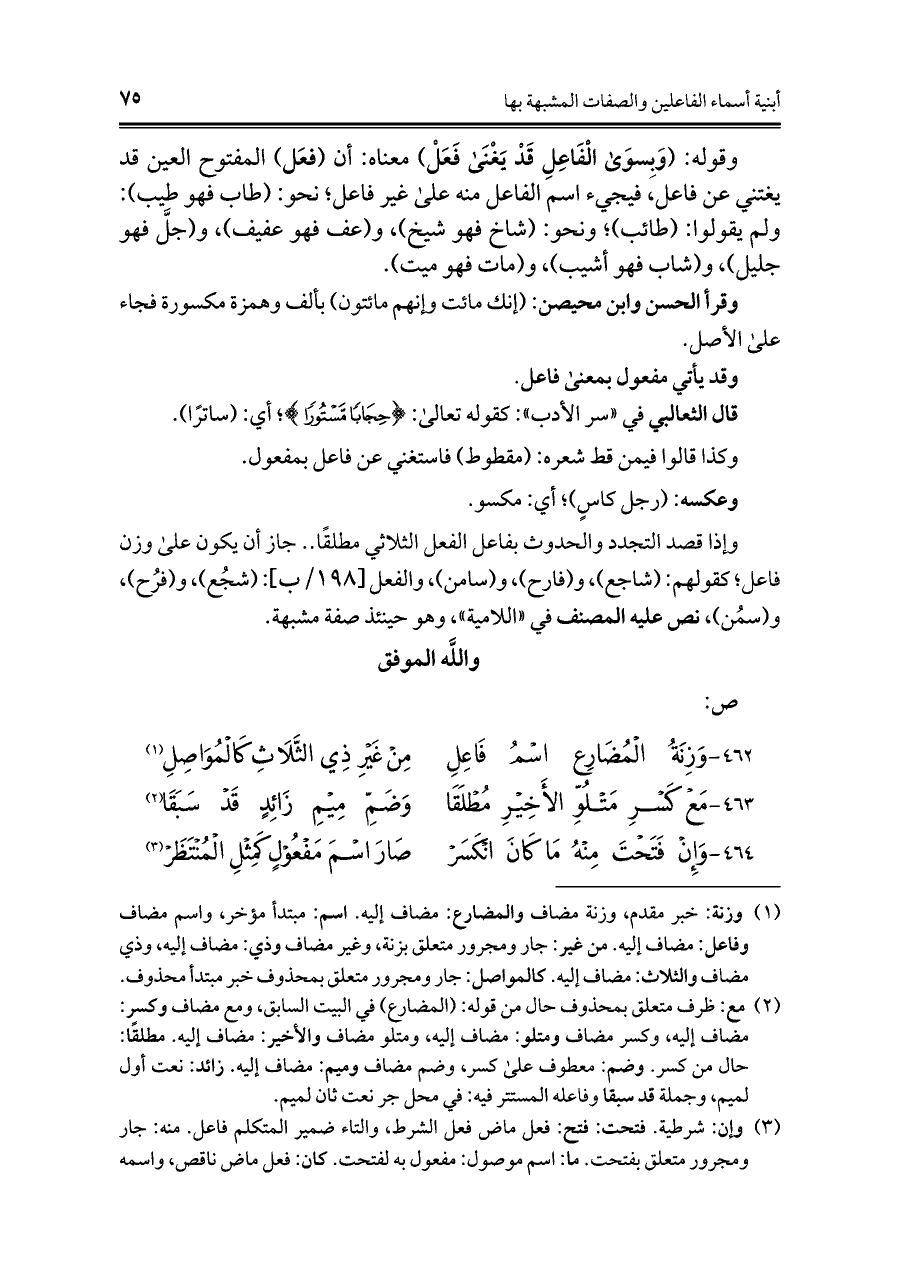 أبنية أسماء الفاعلين والصفات المشبهة بها ٧٥
وقوله: (وَبِسوَىٰ الْفَاعِلِ قَدْ يَغْنَىٰ فَعَلْ) معناه: أن (فعَل) المفتوح العين قد
يغتني عن فاعل، فيجيء اسم الفاعل منه علىٰ غير فاعل؛ نحو: (طاب فهو طيب):
ولم يقولوا: (طائب)؛ ونحو: (شاخ فهو شيخ)، و(عف فهو عفيف)، و(جلَّ فهو
جليل)، و(شاب فهو أشيب)، و(مات فهو ميت).
وقرأ الحسن وابن محيصن: (إنك مائت وإنهم مائتون) بألف وهمزة مكسورة فجاء
علىٰ الأصل.
وقد يأتي مفعول بمعنىٰ فاعل.
قال الثعالبي في «سر الأدب»: كقوله تعالىٰ: ﴿حِجَابًا مَّسْتُورًا﴾؛ أي: (ساترًا).
وكذا قالوا فيمن قط شعره: (مقطوط) فاستغني عن فاعل بمفعول.
وعكسه: (رجل كاسٍ)؛ أي: مكسو.
وإذا قصد التجدد والحدوث بفاعل الفعل الثلاثي مطلقًا.. جاز أن يكون علىٰ وزن
فاعل؛ كقولهم: (شاجع)، و(فارح)، و(سامن)، والفعل [١٩٨/ ب]: (شجُع)، و(فرُح)،
و(سمُن)، نص عليه المصنف في «اللامية»، وهو حينئذ صفة مشبهة.
واللَّه الموفق
ص:
٤٦٢-وَزِنَةُ الْمُضَارِعِ اسْمُ فَاعِلِ مِنْ غَيْرِ ذِي الثَّلَاثِ كَالْمُوَاصِلِ(١)
٤٦٣-مَعْ كَسْرِ مَتْلُوِّ الأَخِيْرِ مُطْلَقَا وَضَمِّ مِيْمٍ زَائِدٍ قَدْ سَبَقَا(٢)
٤٦٤-وَإِنْ فَتَحْتَ مِنْهُ مَا كَانَ انْكَسَرْ صَارَ اسْمَ مَفْعُوْلٍ كَمِثْلِ الْمُنْتَظَرْ(٣)
(١) وزنة: خبر مقدم، وزنة مضاف والمضارع: مضاف إليه. اسم: مبتدأ مؤخر، واسم مضاف
وفاعل: مضاف إليه. من غير: جار ومجرور متعلق بزنة، وغير مضاف وذي: مضاف إليه، وذي
مضاف والثلاث: مضاف إليه. كالمواصل: جار ومجرور متعلق بمحذوف خبر مبتدأ محذوف.
(٢) مع: ظرف متعلق بمحذوف حال من قوله: (المضارع) في البيت السابق، ومع مضاف وكسر:
مضاف إليه، وكسر مضاف ومتلو: مضاف إليه، ومتلو مضاف والأخير: مضاف إليه. مطلقًا:
حال من كسر. وضم: معطوف علىٰ كسر، وضم مضاف وميم: مضاف إليه. زائد: نعت أول
لميم، وجملة قد سبقا وفاعله المستتر فيه: في محل جر نعت ثان لميم.
(٣) وإن: شرطية. فتحت: فتح: فعل ماض فعل الشرط، والتاء ضمير المتكلم فاعل. منه: جار
ومجرور متعلق بفتحت. ما: اسم موصول: مفعول به لفتحت. كان: فعل ماض ناقص، واسمه